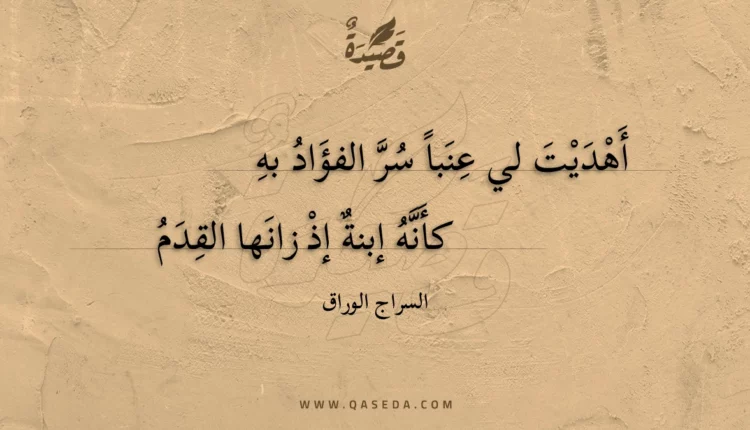 قَصِيْدَةٌ
أَهْدَيْتَ لي عِنَباً سُرَّ الفؤَادُ بهِ
كأَنَّهُ إبنةٌ إذْ زانَها القِدَمُ
السراج الوراق
WWW.QASEDA.COM